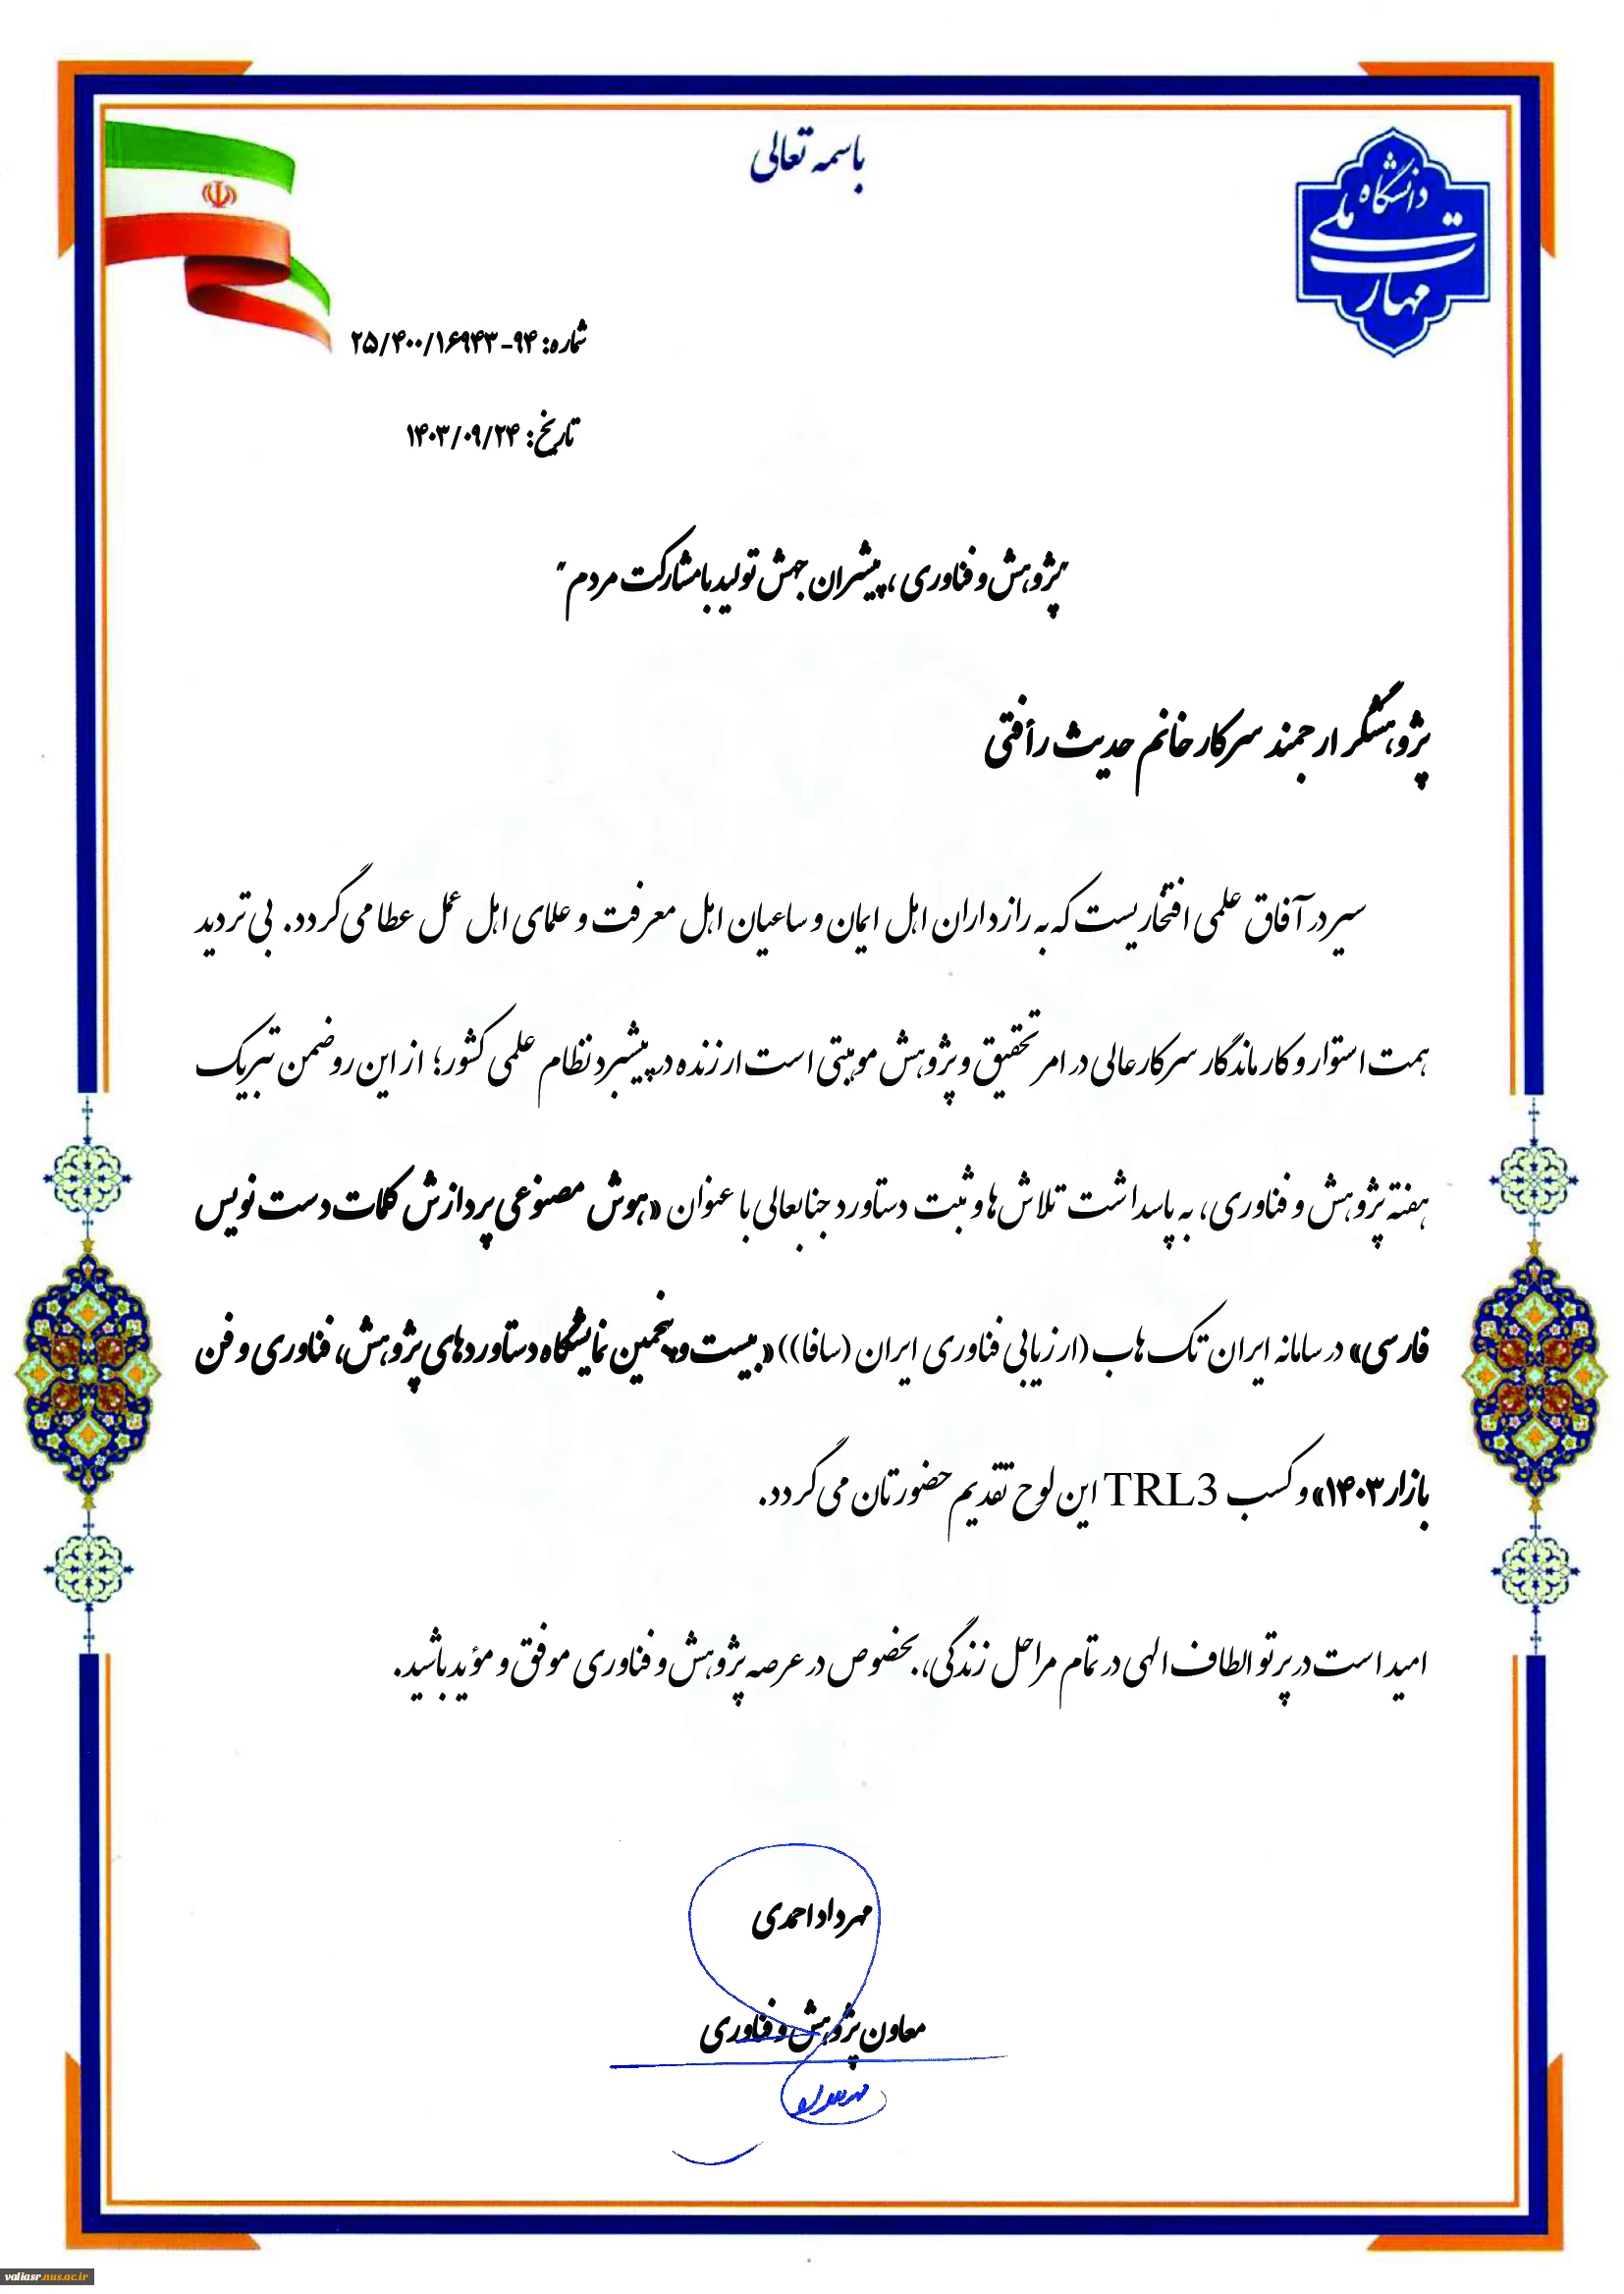 باسمه تعالی
دانشگاه
ملی
مهارت
شماره: ۹۴-۲۵/۴۰۰/۱۶۹۴۳
تاریخ: ۱۴۰۳/۰۹/۲۴
"پژوهش و فناوری، پیشران جهش تولید با مشارکت مردم"
پژوهشگر ارجمند سرکار خانم حدیث رأفتی
سیر در آفاق علمی افتخاریست که به رازداران اهل ایمان و ساعیان اهل معرفت و علمای اهل عمل عطا می گردد. بی تردید
همت استوار و کار ماندگار سرکارعالی در امر تحقیق و پژوهش موهبتی است ارزنده در پیشبرد نظام علمی کشور؛ از این رو ضمن تبریک
هفته پژوهش و فناوری، به پاسداشت تلاش ها و ثبت دستاورد جنابعالی با عنوان «هوش مصنوعی پردازش کلمات دست نویس
فارسی» در سامانه ایران تک هاب (ارزیابی فناوری ایران (سافا)) «بیست و پنجمین نمایشگاه دستاوردهای پژوهش، فناوری و فن
بازار ۱۴۰۳» و کسب TRL3 این لوح تقدیم حضورتان می گردد.
امید است در پرتو الطاف الهی در تمام مراحل زندگی، بخصوص در عرصه پژوهش و فناوری موفق و مؤید باشید.
مهرداد احمدی
معاون پژوهش و فناوری
valiasr.nus.ac.ir